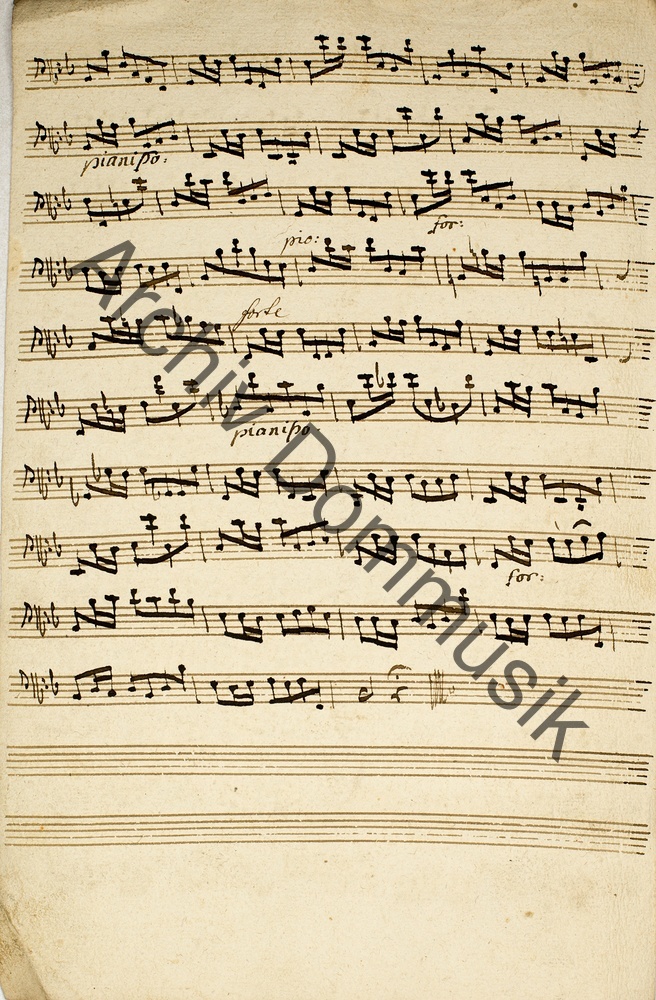 pianipo:
for:
pio:
forte
pianipo.
for:
Archiv Dommusik